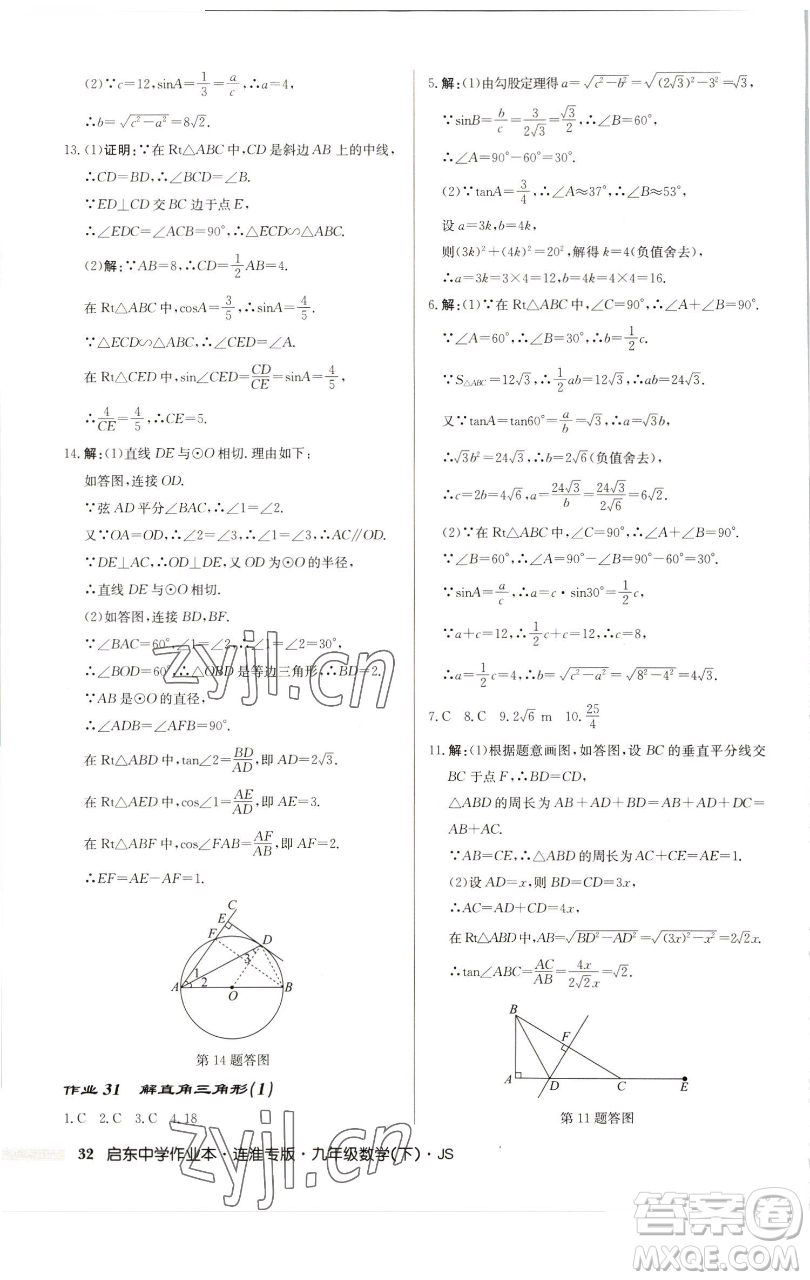 (2)∵c=12,sinA=1/3=a/c,∴a=4,
∴b=√(c²-a²)=8√2.
13.(1)证明:∵在Rt△ABC中,CD是斜边AB上的中线,
∴CD=BD,∴∠BCD=∠B.
∵ED⊥CD交BC边于点E,
∴∠EDC=∠ACB=90°,∴△ECD∽△ABC.
(2)解:∵AB=8,∴CD=1/2AB=4.
在Rt△ABC中,cosA=3/5,∴sinA=4/5.
∵△ECD∽△ABC,∴∠CED=∠A.
在Rt△CED中,sin∠CED=CD/CE=sinA=4/5,
∴4/CE=4/5,∴CE=5.
14.解:(1)直线DE与⊙O相切.理由如下:
如答图,连接OD.
∵弦AD平分∠BAC,∴∠1=∠2.
又∵OA=OD,∴∠2=∠3,∴∠1=∠3,∴AC∥OD.
∵DE⊥AC,∴OD⊥DE,又OD为⊙O的半径,
∴直线DE与⊙O相切.
(2)如答图,连接BD,BF.
∵∠BAC=60°,∠1=∠2,∴∠1=∠2=30°,
∴∠BOD=60°,∴△OBD是等边三角形,∴BD=2.
∵AB是⊙O的直径,
∴∠ADB=∠AFB=90°.
在Rt△ABD中,tan∠2=BD/AD,即AD=2√3.
在Rt△AED中,cos∠1=AE/AD,即AE=3.
在Rt△ABF中,cos∠FAB=AF/AB,即AF=2.
∴EF=AE-AF=1.
C
E
F
D
3
1
2
A
O
B
第14题答图
作业31 解直角三角形(1)
1.C 2.C 3.C 4.18
32 启东中学作业本·连淮专版·九年级数学(下)·JS
5.解:(1)由勾股定理得a=√(c²-b²)=√((2√3)²-3²)=√3,
∵sinB=b/c=3/(2√3)=√3/2,∴∠B=60°,
∴∠A=90°-60°=30°.
(2)∵tanA=3/4,∴∠A≈37°,∴∠B≈53°,
设a=3k,b=4k,
则(3k)²+(4k)²=20²,解得k=4(负值舍去),
∴a=3k=3×4=12,b=4k=4×4=16.
6.解:(1)∵在Rt△ABC中,∠C=90°,∴∠A+∠B=90°.
∵∠A=60°,∴∠B=30°,∴b=1/2c.
∵S△ABC=12√3,∴1/2ab=12√3,∴ab=24√3.
又∵tanA=tan60°=a/b=√3,∴a=√3b,
∴√3b²=24√3,∴b=2√6(负值舍去),
∴c=2b=4√6,a=24√3/b=24√3/(2√6)=6√2.
(2)∵在Rt△ABC中,∠C=90°,∴∠A+∠B=90°.
∵∠B=60°,∴∠A=90°-∠B=90°-60°=30°.
∵sinA=a/c,∴a=c·sin30°=1/2c,
∵a+c=12,∴1/2c+c=12,∴c=8,
∴a=1/2c=4,∴b=√(c²-a²)=√(8²-4²)=4√3.
7.C 8.C 9.2√6 m 10.25/4
11.解:(1)根据题意画图,如答图,设BC的垂直平分线交
BC于点F,∴BD=CD,
△ABD的周长为AB+AD+BD=AB+AD+DC=
AB+AC.
∵AB=CE,∴△ABD的周长为AC+CE=AE=1.
(2)设AD=x,则BD=CD=3x,
∴AC=AD+CD=4x,
在Rt△ABD中,AB=√(BD²-AD²)=√((3x)²-x²)=2√2x.
∴tan∠ABC=AC/AB=4x/(2√2x)=√2.
B
F
A
D
C
E
第11题答图
zyjl.cn
zyjl.cn
答案卷
MXQE.COM